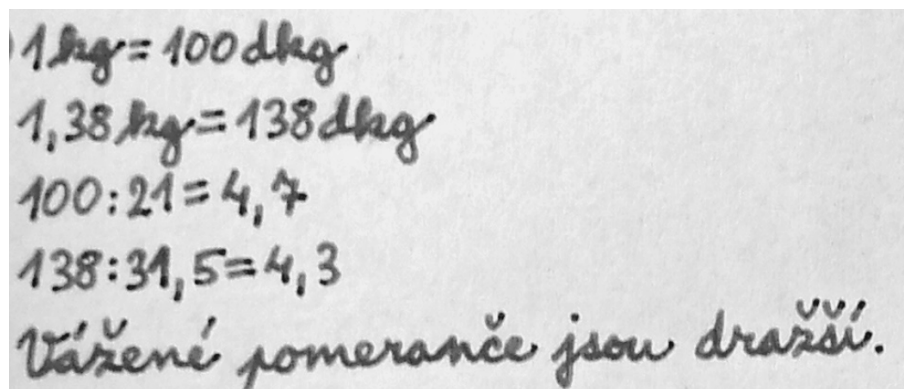 1 kg = 100 dkg
1,38 kg = 138 dkg
100:21 = 4,7
138:31,5 = 4,3
Vážené pomeranče jsou dražší.